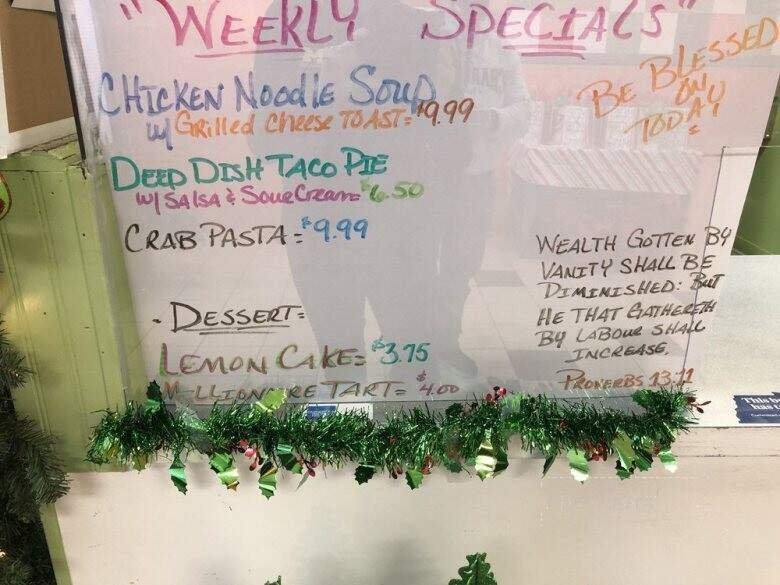 "WEEKLY SPECIALS"
CHICKEN NOODLE SOUP
w/ Grilled Cheese TOAST= $9.99
DEEP DISH TACO PIE
W/ SALSA & Sour Cream= $6.50
CRAB PASTA= $9.99
- DESSERT=
LEMON CAKE= $3.75
MILLIONAIRE TART= $4.00
BE BLESSED
ON
TODAY
WEALTH GOTTEN BY
VANITY SHALL BE
DIMINISHED: BUT
HE THAT GATHERETH
BY LABOUR SHALL
INCREASE.
PROVERBS 13:11
This b
has